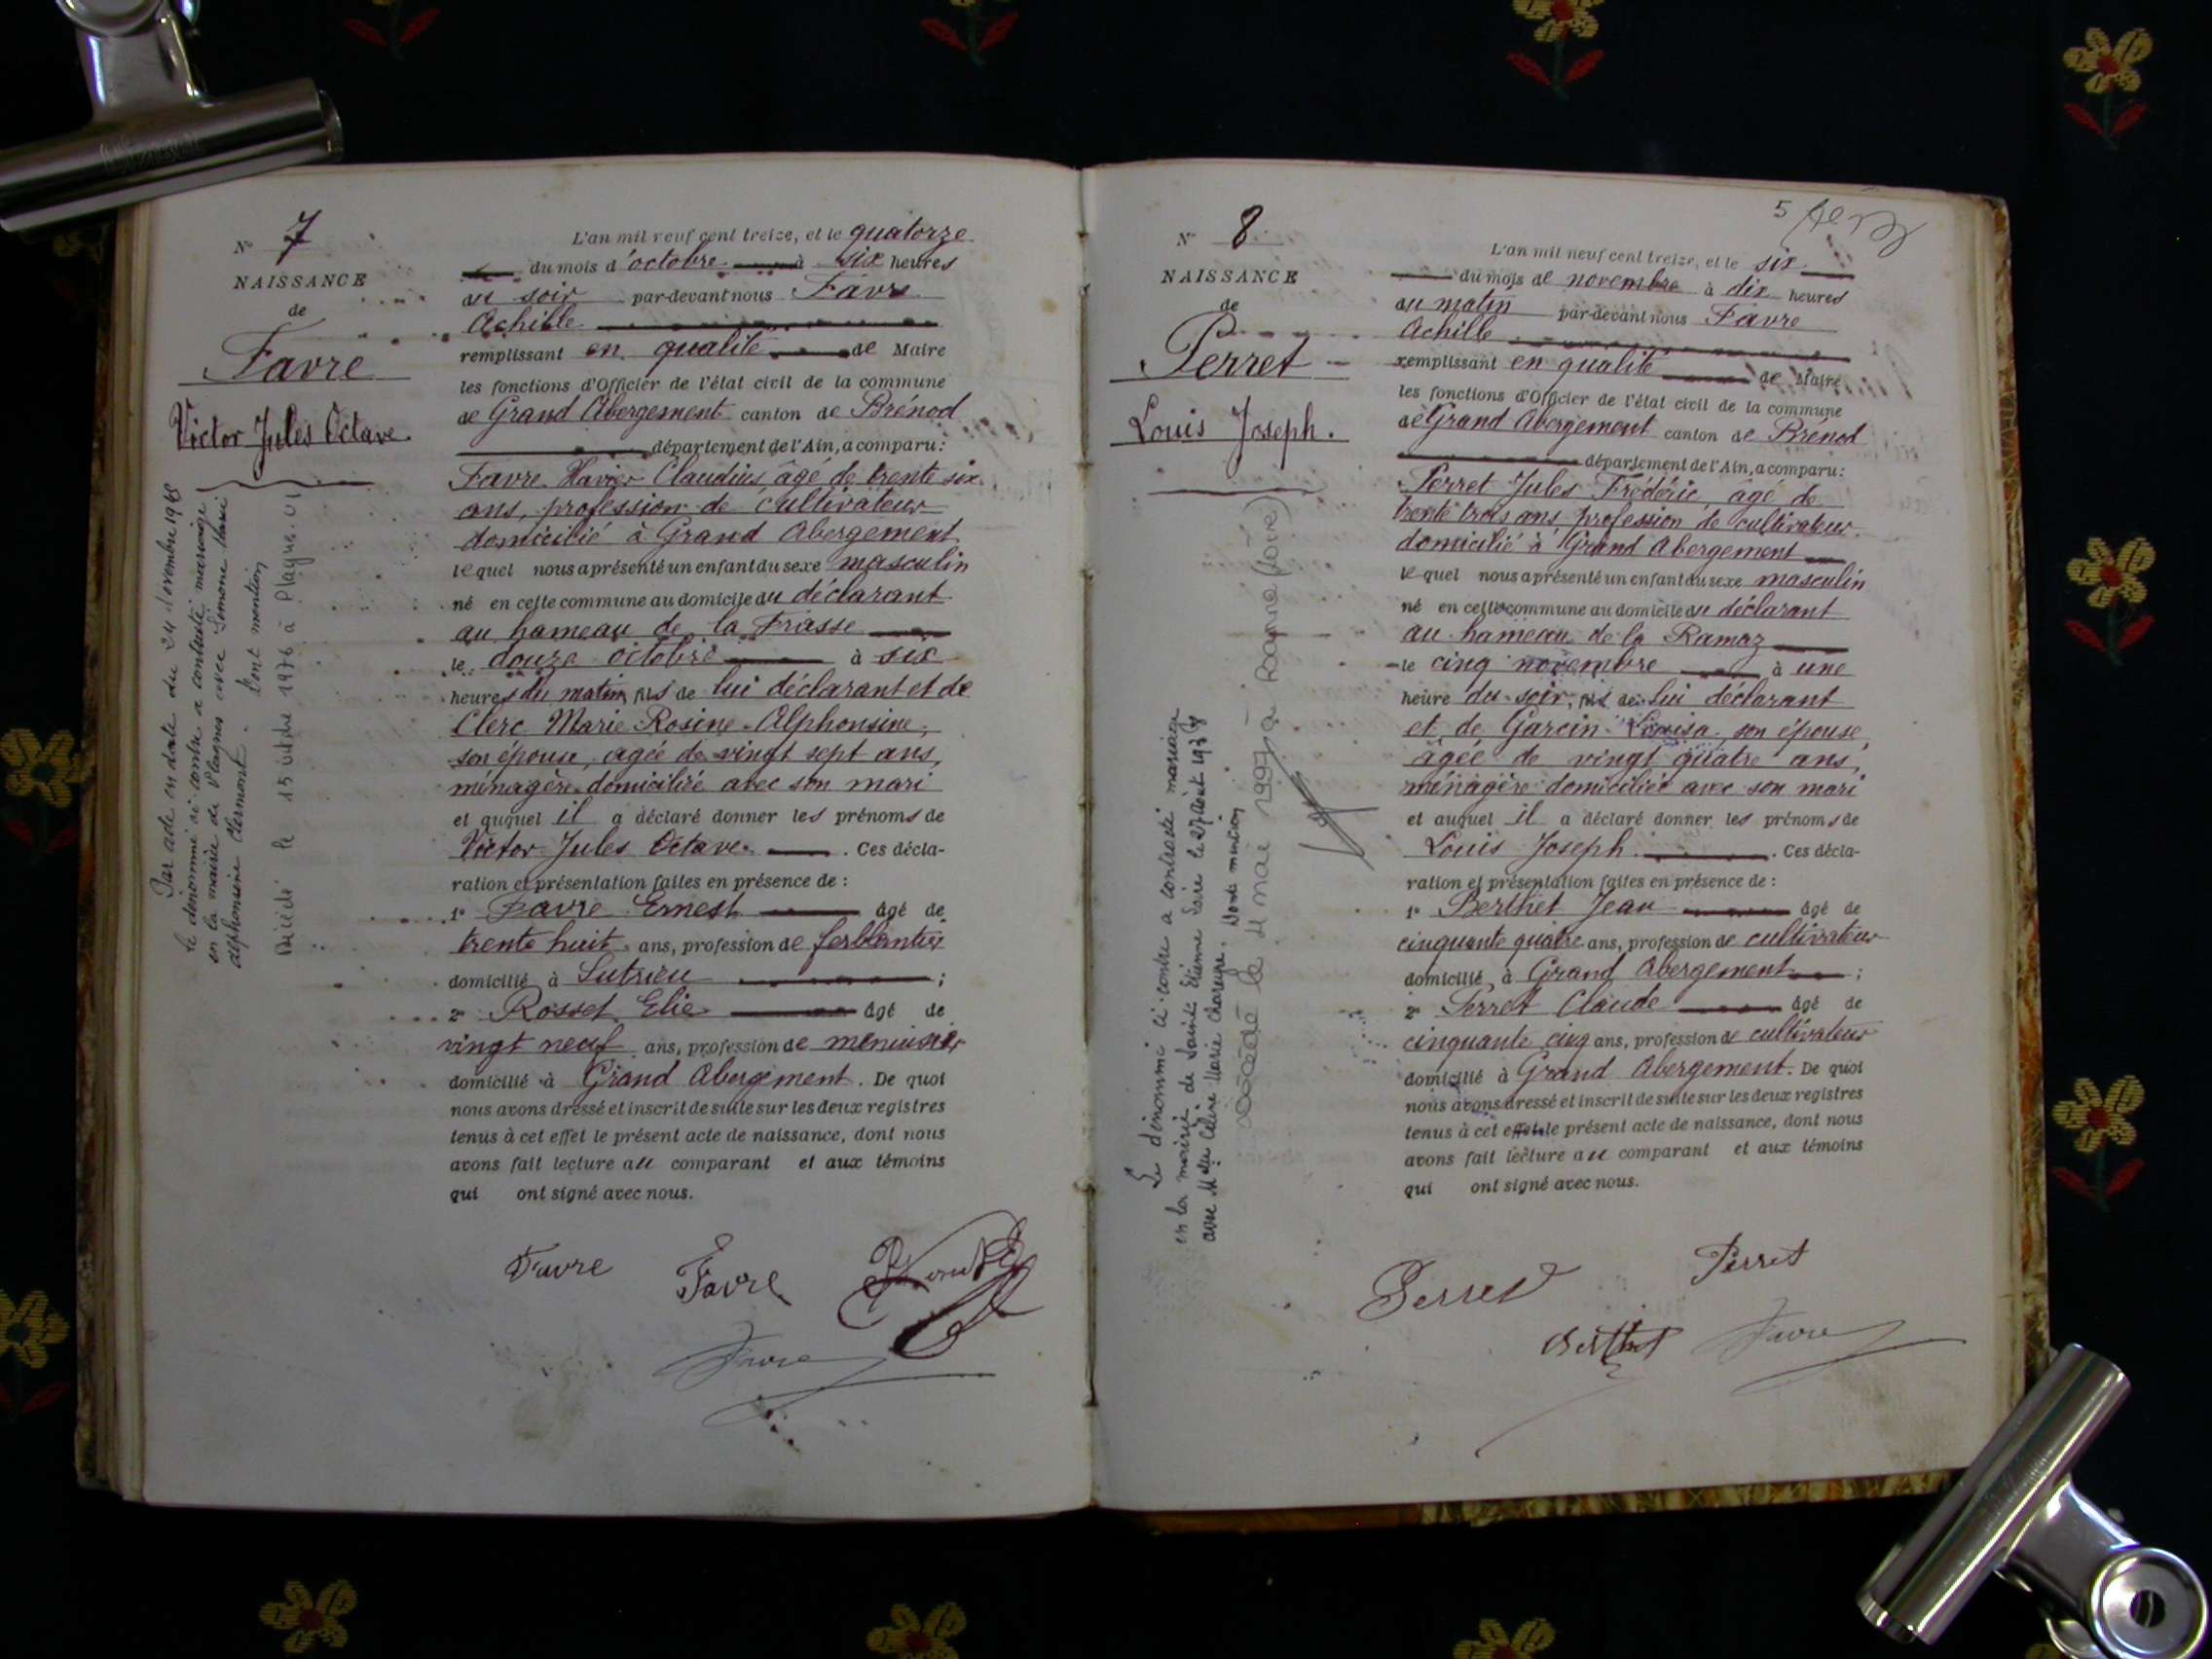 N° 7
NAISSANCE
de
Favre
Victor Jules Octave
Par acte en date du 24 Novembre 1948
le dénommé ci contre a contracté mariage
en la mairie de Plagnes avec Simone Marie
Alphonsine Clermont. Dont mention
Décédé le 15 octobre 1976 à Plagne. 01
L'an mil neuf cent treize, et le quatorze
du mois d'octobre à six heures
du soir par-devant nous Favre
Achille
remplissant en qualité de Maire
les fonctions d'Officier de l'état civil de la commune
de Grand Abergement canton de Brénod
département de l'Ain, a comparu:
Favre Xavier Claudius, âgé de trente six
ans, profession de cultivateur
domicilié à Grand Abergement
lequel nous a présenté un enfant du sexe masculin
né en cette commune au domicile du déclarant
au hameau de la Frasse
le douze octobre à six
heures du matin, fils de lui déclarant et de
Clerc Marie Rosine Alphonsine,
son épouse, agée de vingt sept ans,
ménagère domiciliée avec son mari
et auquel il a déclaré donner les prénoms de
Victor Jules Octave. . Ces décla-
ration et présentation faites en présence de :
1° Favre Ernest âgé de
trente huit ans, profession de ferblantier
domicilié à Sutrieu ;
2° Rosset Elie âgé de
vingt neuf ans, profession de menuisier
domicilié à Grand Abergement. De quoi
nous avons dressé et inscrit de suite sur les deux registres
tenus à cet effet le présent acte de naissance, dont nous
avons fait lecture au comparant et aux témoins
qui ont signé avec nous.
Favre Favre
Favre
N° 8
NAISSANCE
de
Perret
Louis Joseph.
Le dénommé ci-contre a contracté mariage
en la mairie de Sainte Etienne Loire le 27 août 1938
avec Melle Céline Marie Chareyre. Dont mention
décédé le 4 mai 1997 à Roanne (Loire)
5
L'an mil neuf cent treize, et le six
du mois de novembre à dix heures
du matin par-devant nous Favre
Achille
remplissant en qualité de Maire
les fonctions d'Officier de l'état civil de la commune
de Grand Abergement canton de Brénod
département de l'Ain, a comparu:
Perret Jules Frédéric, âgé de
trente trois ans, profession de cultivateur
domicilié à Grand Abergement
lequel nous a présenté un enfant du sexe masculin
né en cette commune au domicile du déclarant
au hameau de la Ramaz
le cinq novembre à une
heure du soir, fils de lui déclarant
et de Garcin Louisa, son épouse,
âgée de vingt quatre ans,
ménagère domiciliée avec son mari
et auquel il a déclaré donner les prénoms de
Louis Joseph. . Ces décla-
ration et présentation faites en présence de :
1° Berthet Jean âgé de
cinquante quatre ans, profession de cultivateur
domicilié à Grand Abergement ;
2° Perret Claude âgé de
cinquante cinq ans, profession de cultivateur
domicilié à Grand Abergement. De quoi
nous avons dressé et inscrit de suite sur les deux registres
tenus à cet effet le présent acte de naissance, dont nous
avons fait lecture au comparant et aux témoins
qui ont signé avec nous.
Perret Perret
Berthet Favre